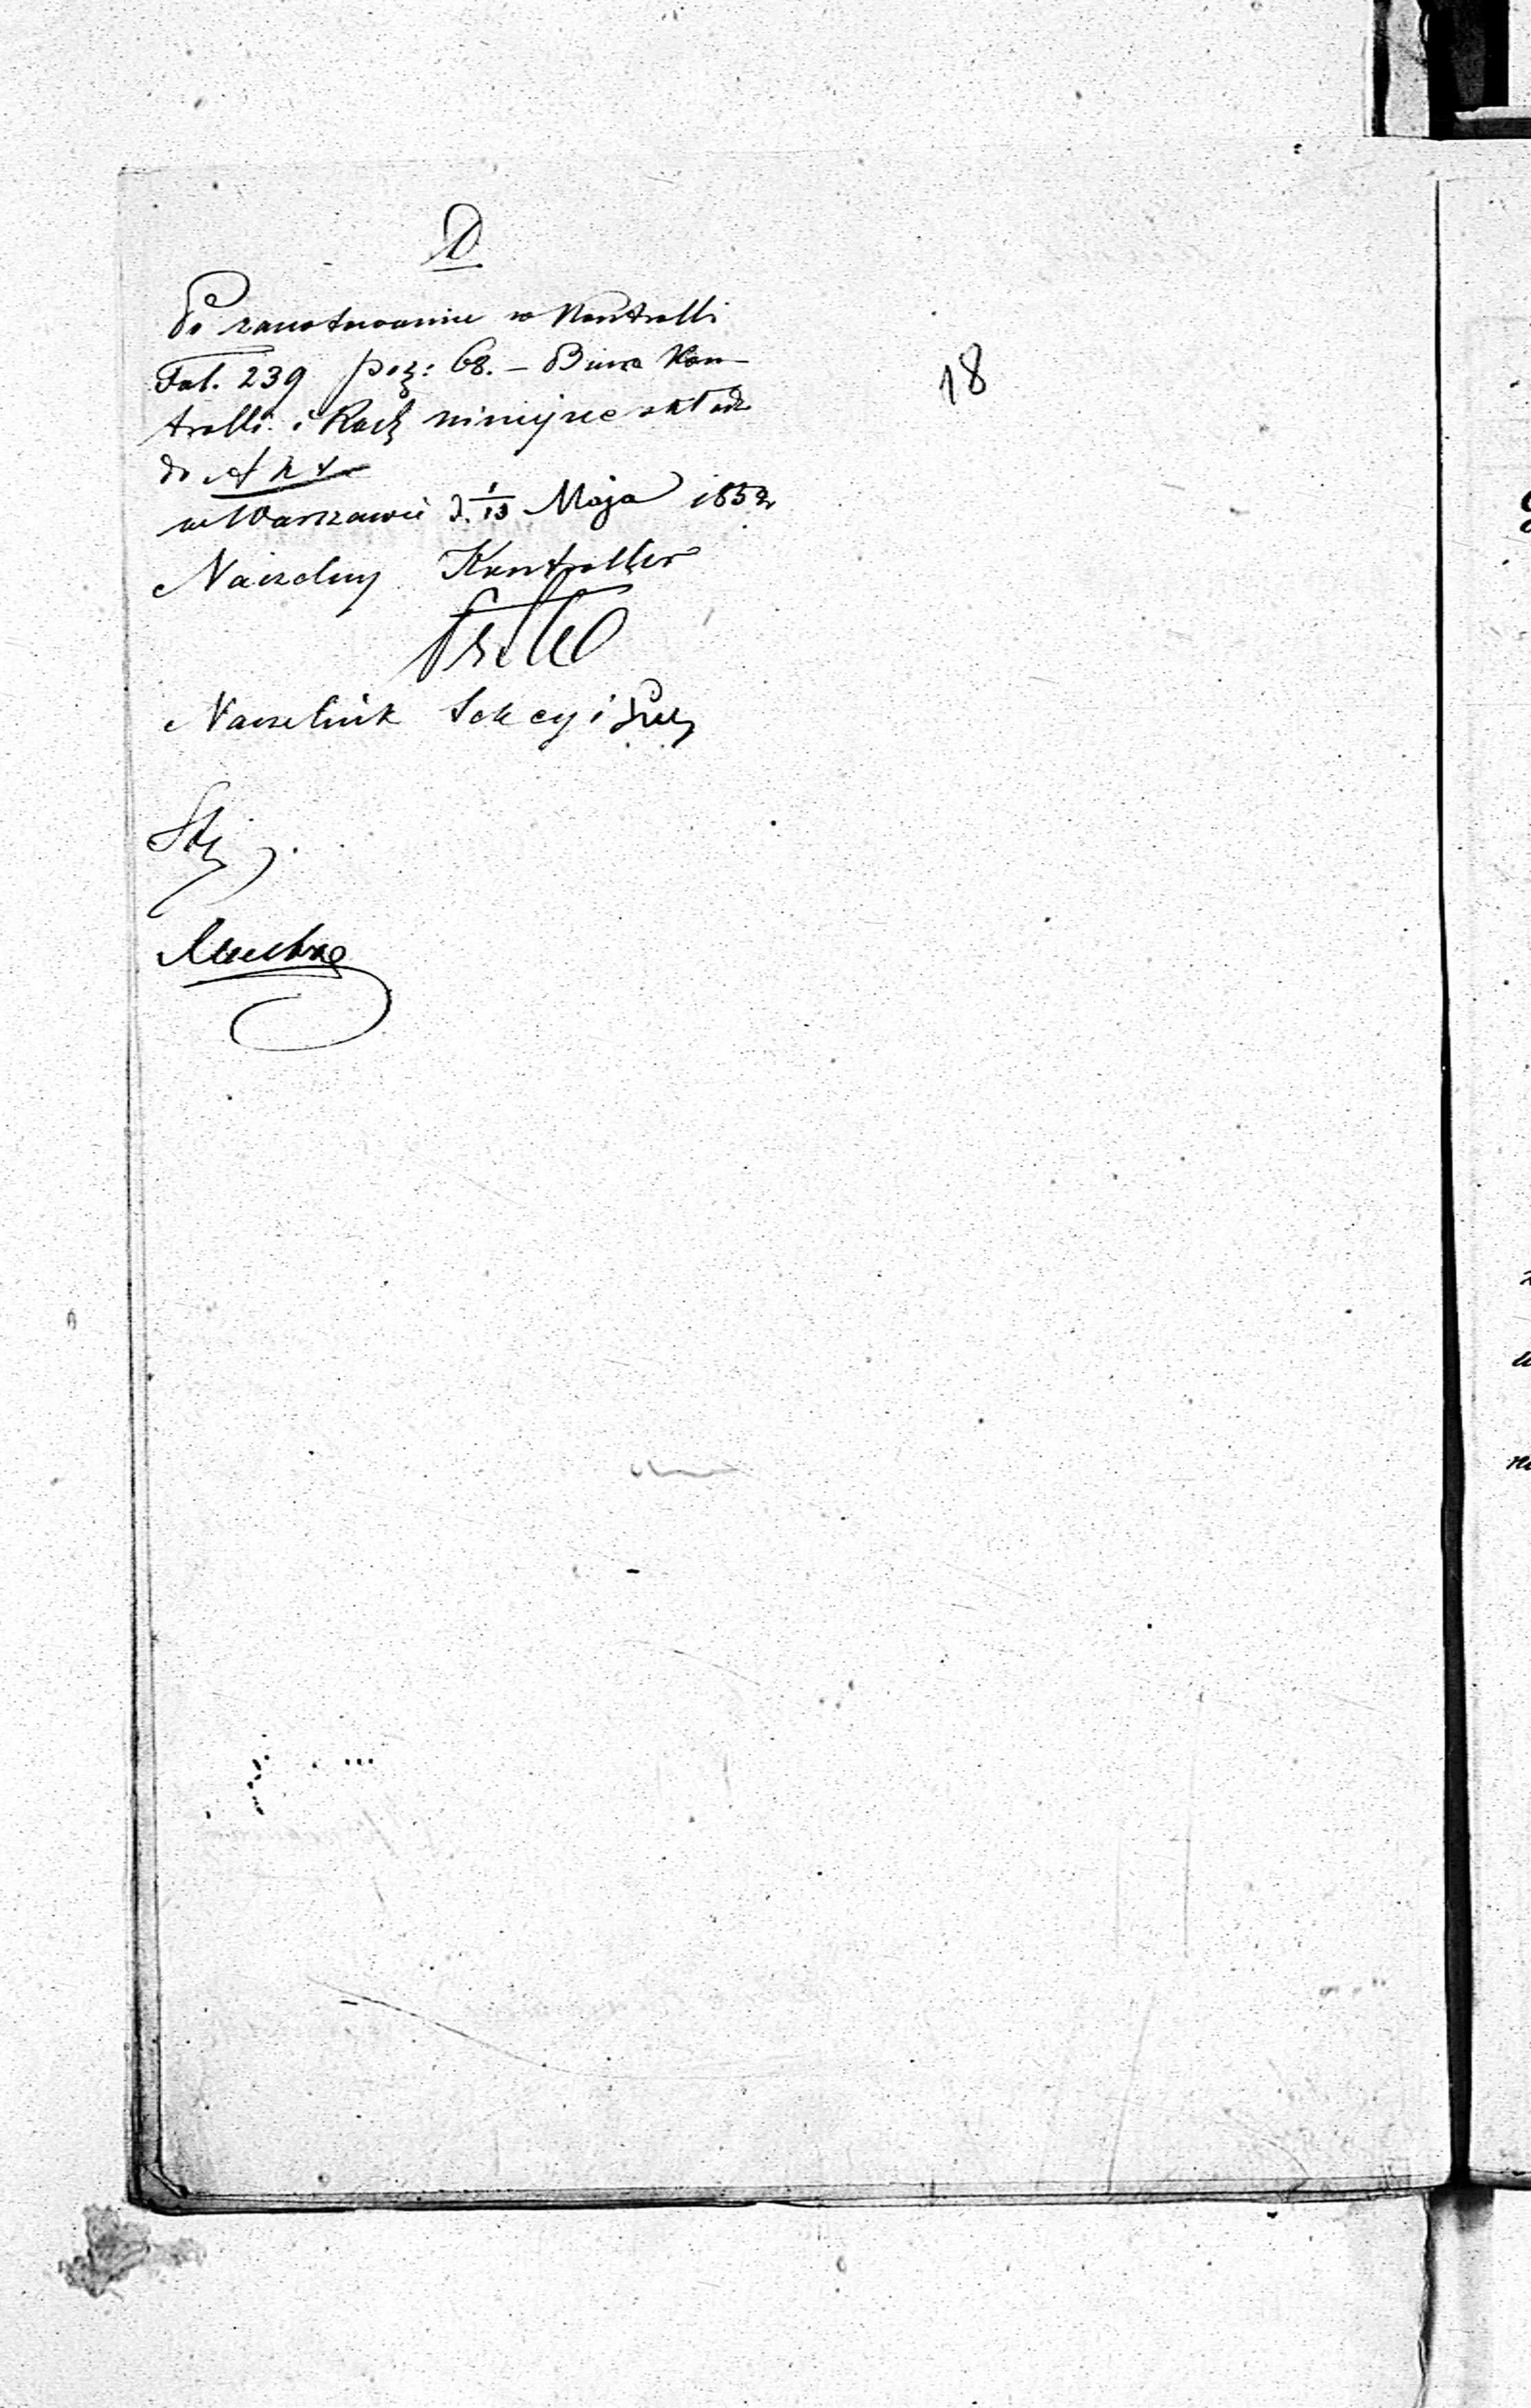 D
Po zanotowaniu w Kontrolli
Fol. 239 poz: 68. – Biura Kon-
trolli i Rach niniejsze składa
do Akt
w Warszawie d. 1/13 Maja 1852
Naczelny Kontroller
Naczelnik Sekcyi
18